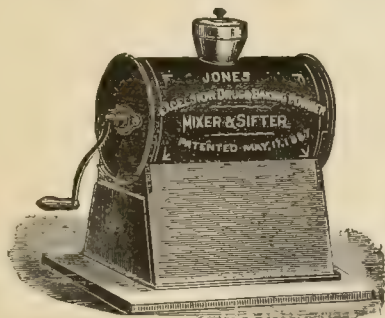 JONES
EXCELSIOR DRUG & BAKING POWDER
MIXER & SIFTER
PATENTED MAY, 17, 1887